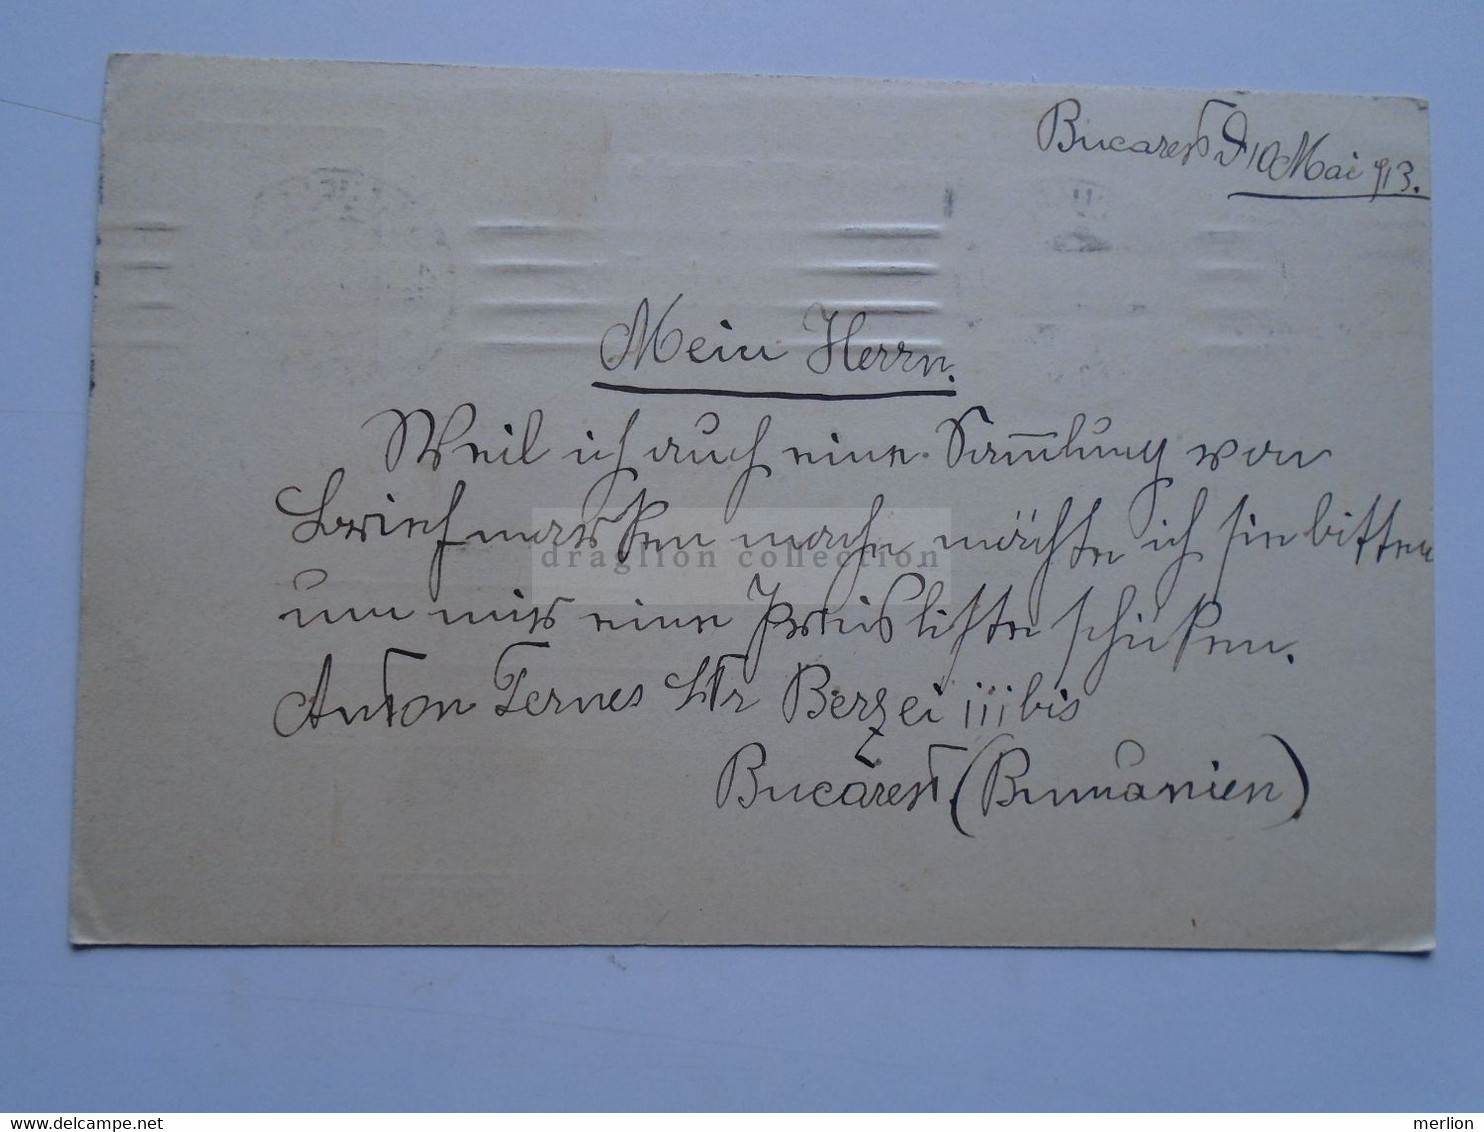 Bucarest d 10 Mai 913.
Mein Herrn.
Weil ich auch eine Sammlung von
Briefmarken mache möchte ich sie bitten
um mir eine Preisliste schicken.
Anton Ternes Str Berzei iii bis
Bucarest (Rumänien)
draglion collection
merlion